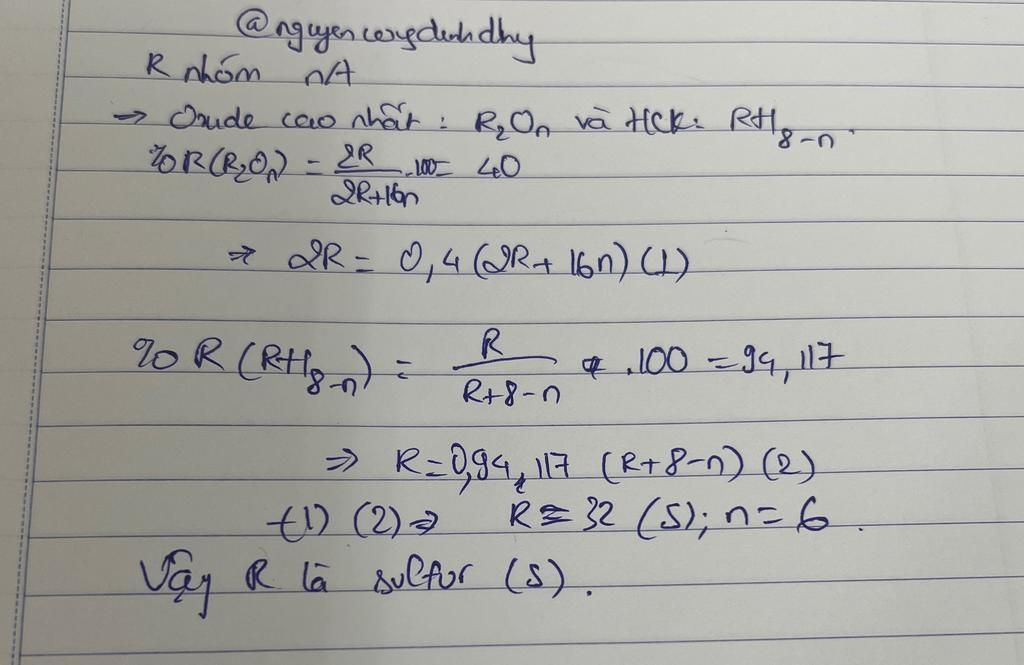 @nguyencongdinhdhy
R nhóm nA
→ Oxide cao nhất : R₂Oₙ và HCK: RH₈₋ₙ.
%R(R₂Oₙ) = 2R/(2R+16n) .100= 40
⇒ 2R = 0,4 (2R+ 16n) (1)
% R (RH₈₋ₙ) = R/(R+8-n) .100 = 94,117
⇒ R=0,94,117 (R+8-n) (2)
(1) (2) ⇒ R = 32 (S); n = 6.
Vậy R là sulfur (S).